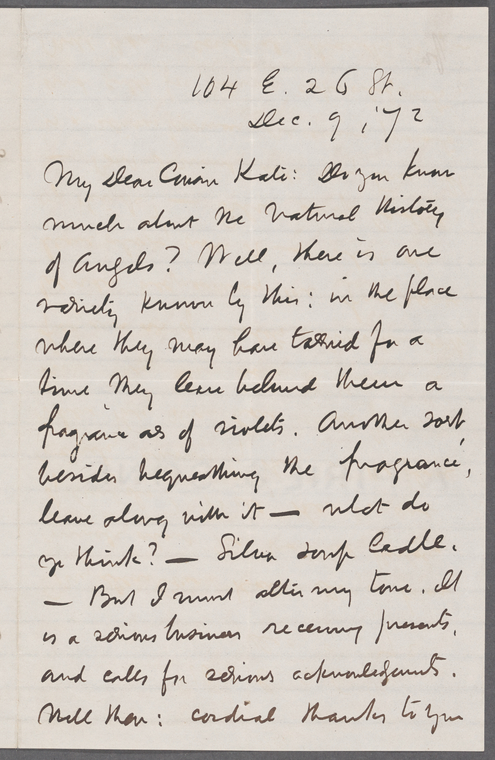 104 E. 26 St.
Dec. 9, '72
My Dear Cousin Kate: Do you know
much about the Natural History
of Angels? Well, there is one
variety known by this: in the place
where they may have tarried for a
time they leave behind them a
fragrance as of violets. Another sort,
besides bequeathing the fragrance,
leave along with it — what do
ye think? — Silver soup ladle.
— But I must alter my tone. It
is a serious business receiving presents,
and calls for serious acknowledgments.
Well then: cordial thanks to you